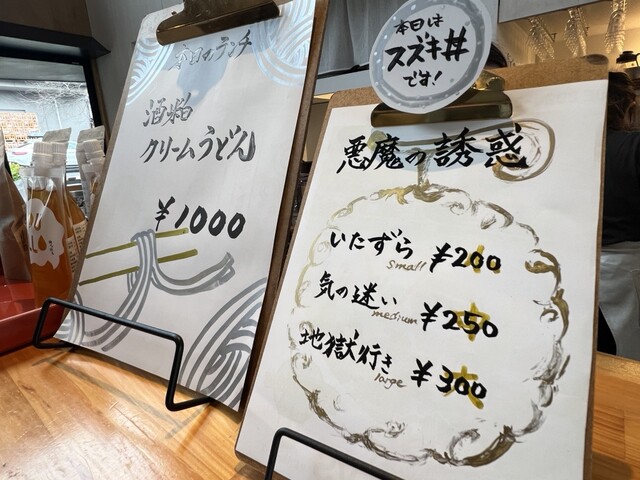 本日のランチ
酒粕
クリームうどん
¥1000
本日は
スズキ丼
です!
悪魔の誘惑
いたずら ¥200
small
気の迷い ¥250
medium
地獄行き ¥300
large